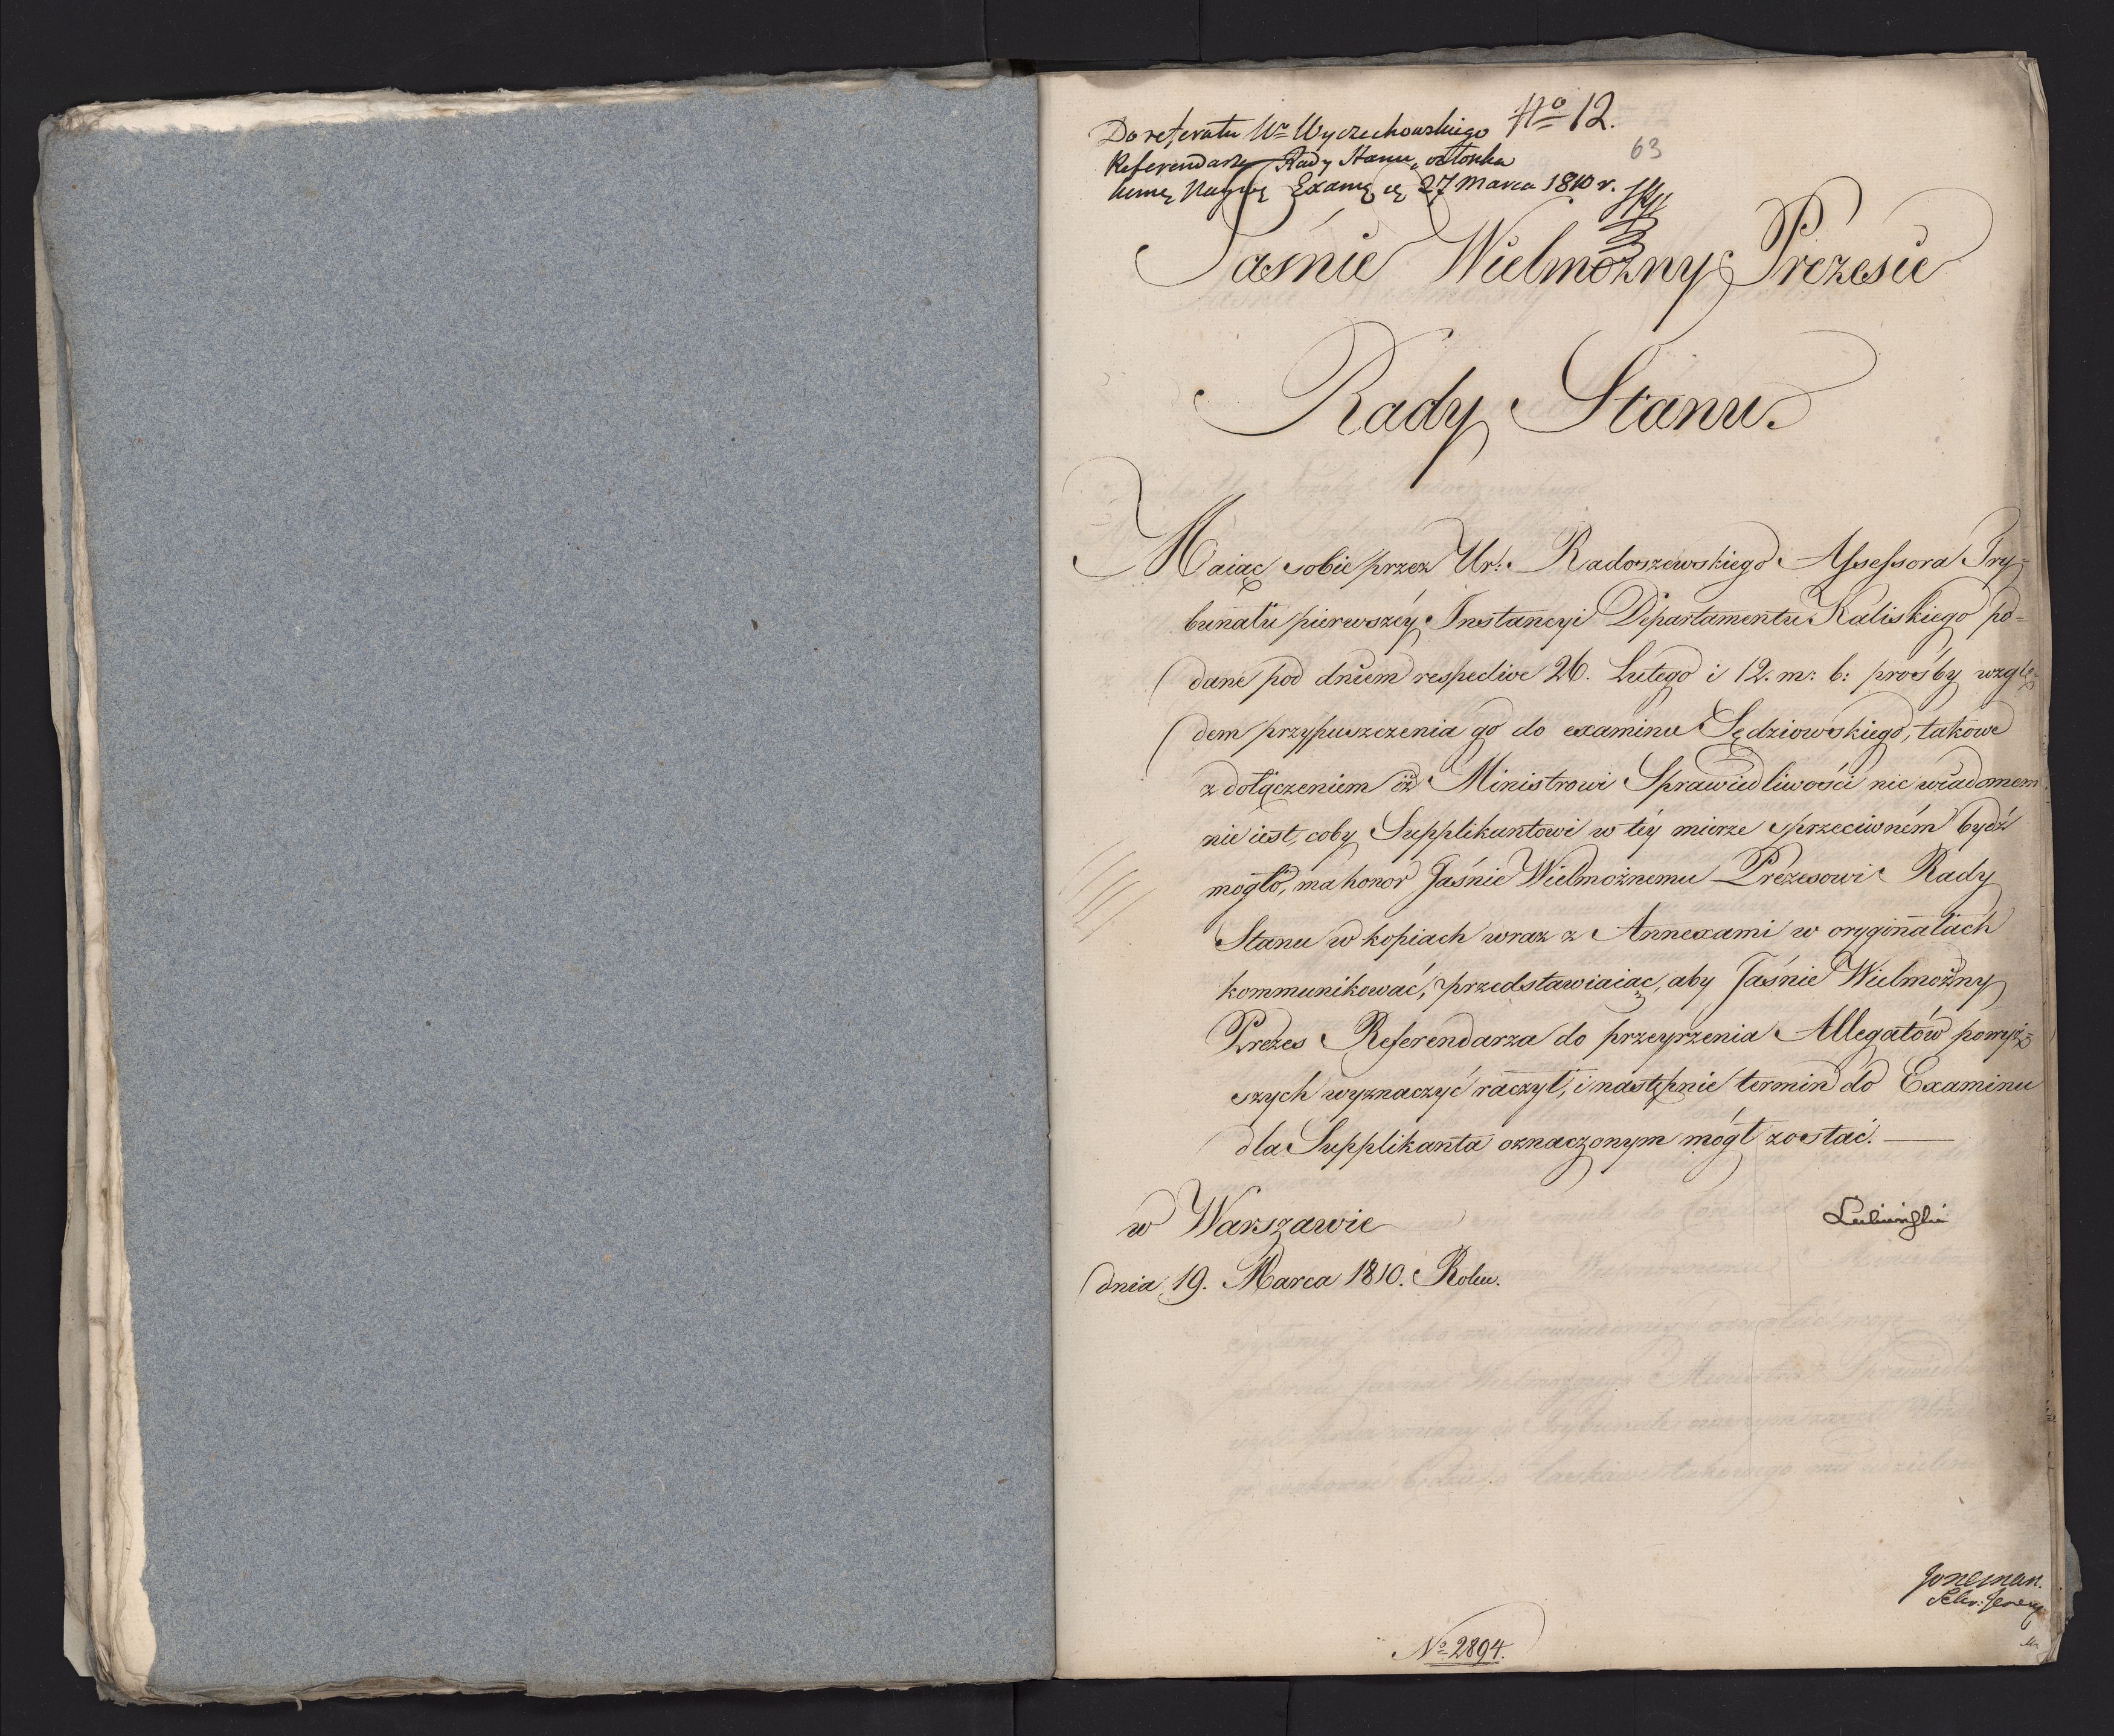 Do referatu Wo Wyczechowskiego No 12.
Referendarza Rady Stanu, członka
63
27 Marca 1810 r.
Jaśnie Wielmożny Prezesie
Rady Stanu.
Maiąc sobie przez Ur: Radoszewskiego Assessora Try-
bunału pierwszéy Instancyi Departamentu Kaliskiego po-
dane pod dniem respective 26. Lutego i 12. m: b: prośby wzglę-
dem przypuszczenia go do examinu Sędziowskiego, takowe
z dołączeniem iż Ministrowi Sprawiedliwości nic wiadomem
nie iest, coby Supplikantowi w téy mierze przeciwném bydź
mogło, ma honor Jaśnie Wielmożnemu Prezesowi Rady
Stanu w kopiach wraz z Annexami w oryginałach
kommunikować, przedstawiaiąc, aby Jaśnie Wielmożny
Prezes Referendarza do przeyrzenia Allegatów powyż-
szych wyznaczyć raczył, i następnie termin do Examinu
dla Supplikanta oznaczonym mógł zostać.
w Warszawie
Lubieński
dnia 19. Marca 1810. Roku.
Joneman.
Sekr: Jener
No 2894.